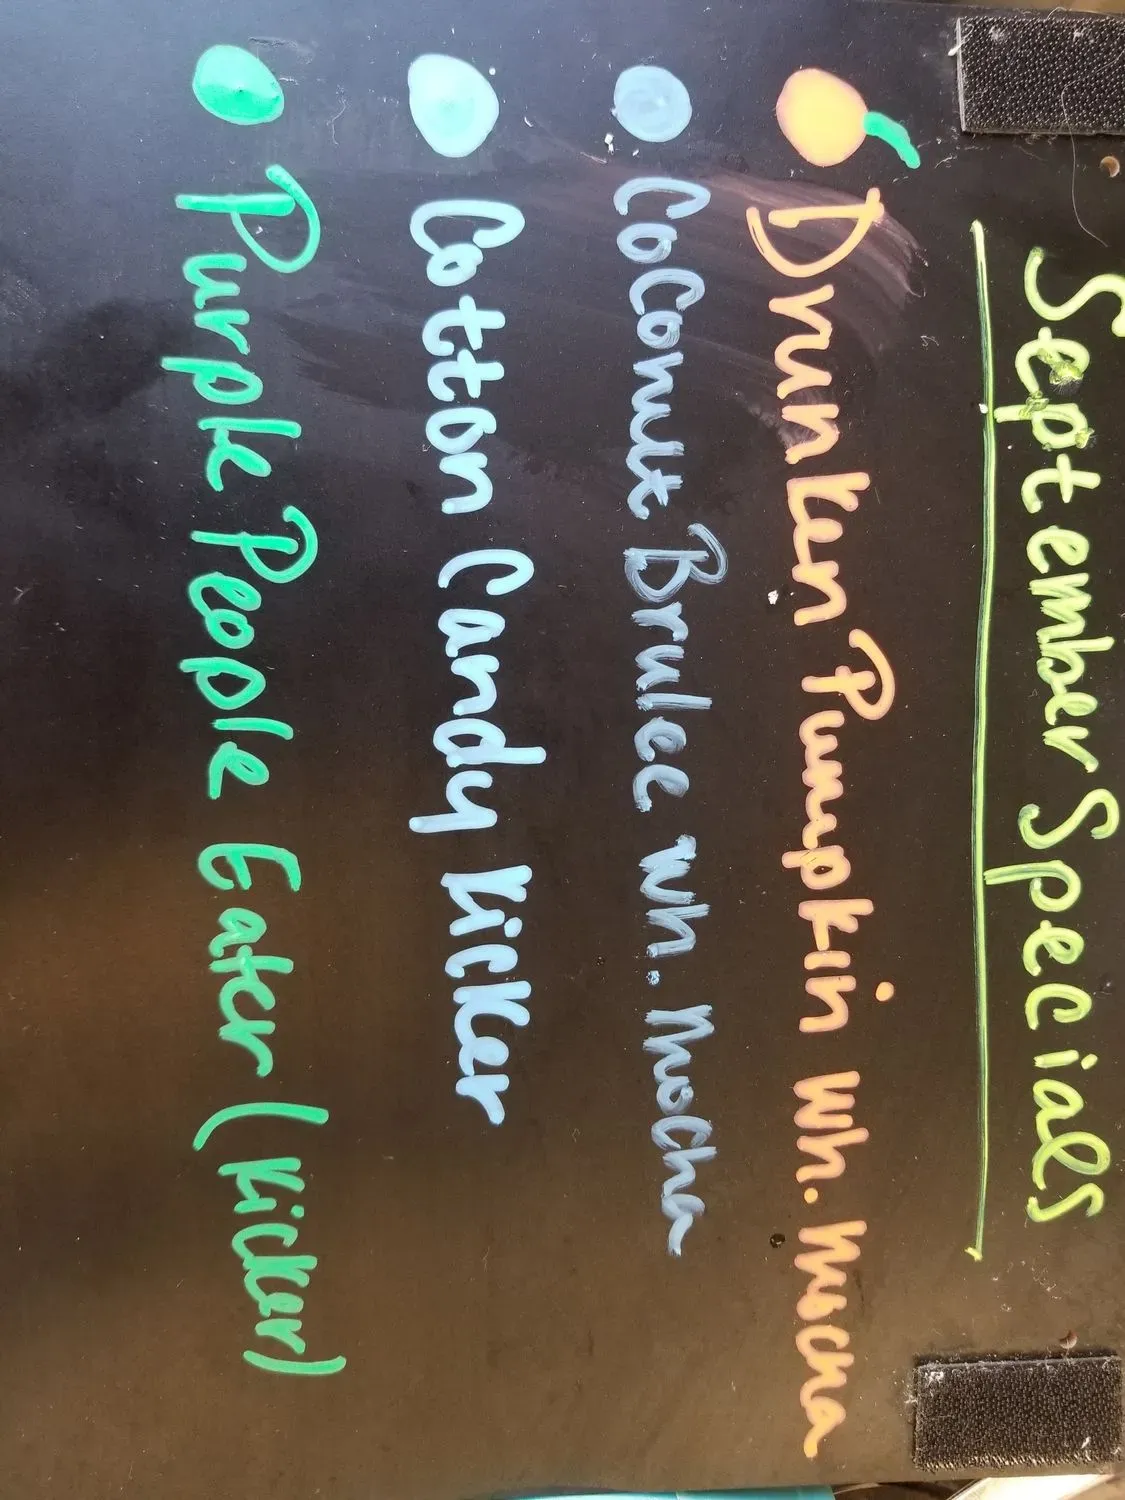 September Specials
Drunken Pumpkin Wh. Mocha
CoConut Brulee Wh. Mocha
Cotton Candy Kicker
Purple People Eater (Kicker)